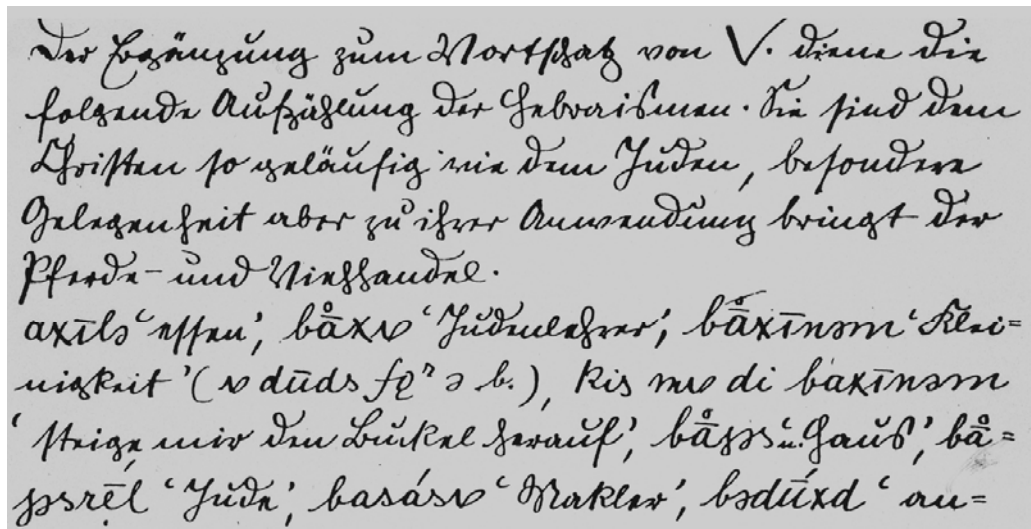 Der Ergänzung zum Wortschatz von V. diene die
folgende Aufzählung der Hebraismen. Sie sind dem
Christen so geläufig wie dem Juden, besondere
Gelegenheit aber zu ihrer Anwendung bringt der
Pferde- und Viehhandel.
axīlə 'essen', bā̊xɐ 'Judenlehrer', bā̊xīnəm 'Klei=
nigkeit' (ɐ dūds fęⁿ ə b.), kis mɐ di baxīnəm
'steige mir den Buckel herauf', u. Haus', bā̊=
'Jude', basásɐ 'Makler', bədū́xd 'an=